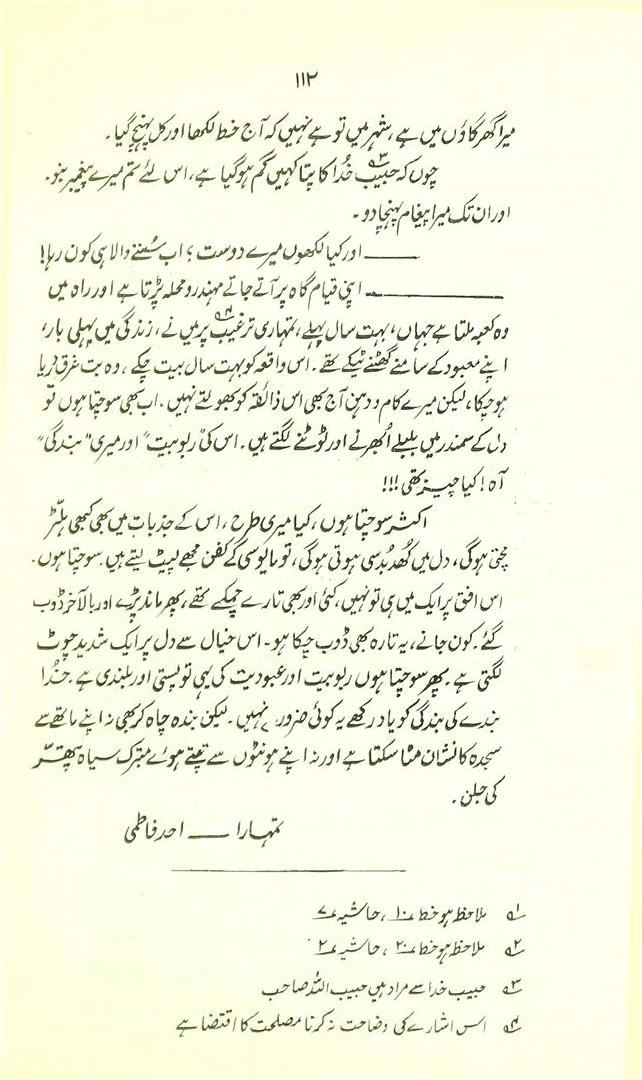 ۱۱۲
میرا گھر گاؤں میں ہے، شہر میں تو ہے نہیں کہ آج خط لکھا اور کل پہنچ گیا۔
چوں کہ حبیب خُدا۳؎ کا پتا کہیں گم ہو گیا ہے، اس لئے تم میرے پیغمبر بنو۔
اور ان تک میرا پیغام پہنچا دو۔
ــــــــ اور کیا لکھوں میرے دوست؟ اب سُننے والا ہی کون رہا!
ــــــــــــــــ اپنی قیام گاہ پر آتے جاتے مہندرو محلہ پڑتا ہے اور راہ میں
وہ کعبہ ملتا ہے جہاں، بہت سال پہلے، تمہاری ترغیب۴؎ پر میں نے، زندگی میں پہلی بار،
اپنے معبود کے سامنے گھٹنے ٹیکے تھے۔ اس واقعہ کو بہت سال بیت چکے، وہ بت غرق دریا
ہو چکا، لیکن میرے کام و دہن آج بھی اس ذائقہ کو بھولتے نہیں۔ اب بھی سوچتا ہوں تو
دل کے سمندر میں بلبلے اُبھرنے اور ٹوٹنے لگتے ہیں۔ اس کی "ربوبیت" اور میری "بندگی"
آہ! کیا چیز تھی!!!
اکثر سوچتا ہوں، کیا میری طرح، اس کے جذبات میں بھی کبھی ہلّڑ
مچتی ہوگی، دل میں کُھدبُدسی ہوتی ہوگی، تو مایوسی کے کفن مجھے لپیٹ لیتے ہیں۔ سوچتا ہوں۔
اس افق پر ایک میں ہی تو نہیں، کئی اور بھی تارے چمکے تھے، پھر ماند پڑے اور بالآخر ڈوب
گئے۔ کون جانے، یہ تارہ بھی ڈوب چکا ہو۔ اس خیال سے دل پر ایک شدید چوٹ
لگتی ہے۔ پھر سوچتا ہوں ربوبیت اور عبودیت کی یہی تو پستی اور بلندی ہے۔ خُدا
بندے کی بندگی کو یاد رکھے یہ کوئی ضرور نہیں۔ لیکن بندہ چاہ کر بھی نہ اپنے ماتھے سے
سجدہ کا نشان مٹا سکتا ہے اور نہ اپنے ہونٹوں سے تپتے ہوئے متبرک سیاہ پتھر
کی جلن۔
تمہارا ـــــ احد فاطمی
۱؎ ملاحظہ ہو خط ۱۰، حاشیہ ۷
۲؎ ملاحظہ ہو خط ۲۰، حاشیہ ۲
۳؎ حبیب خدا سے مراد ہیں حبیب اللہ صاحب
۴؎ اس اشارے کی وضاحت نہ کرنا مصلحت کا اقتضا ہے